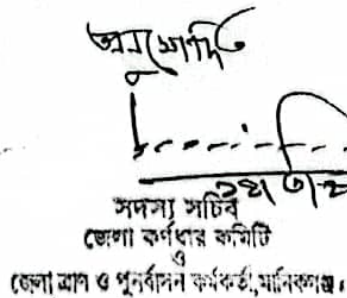 অনুমোদিত
সদস্য সচিব
জেলা কর্ণধার কমিটি
ও
জেলা ত্রাণ ও পুনর্বাসন কর্মকর্তা,মানিকগঞ্জ।